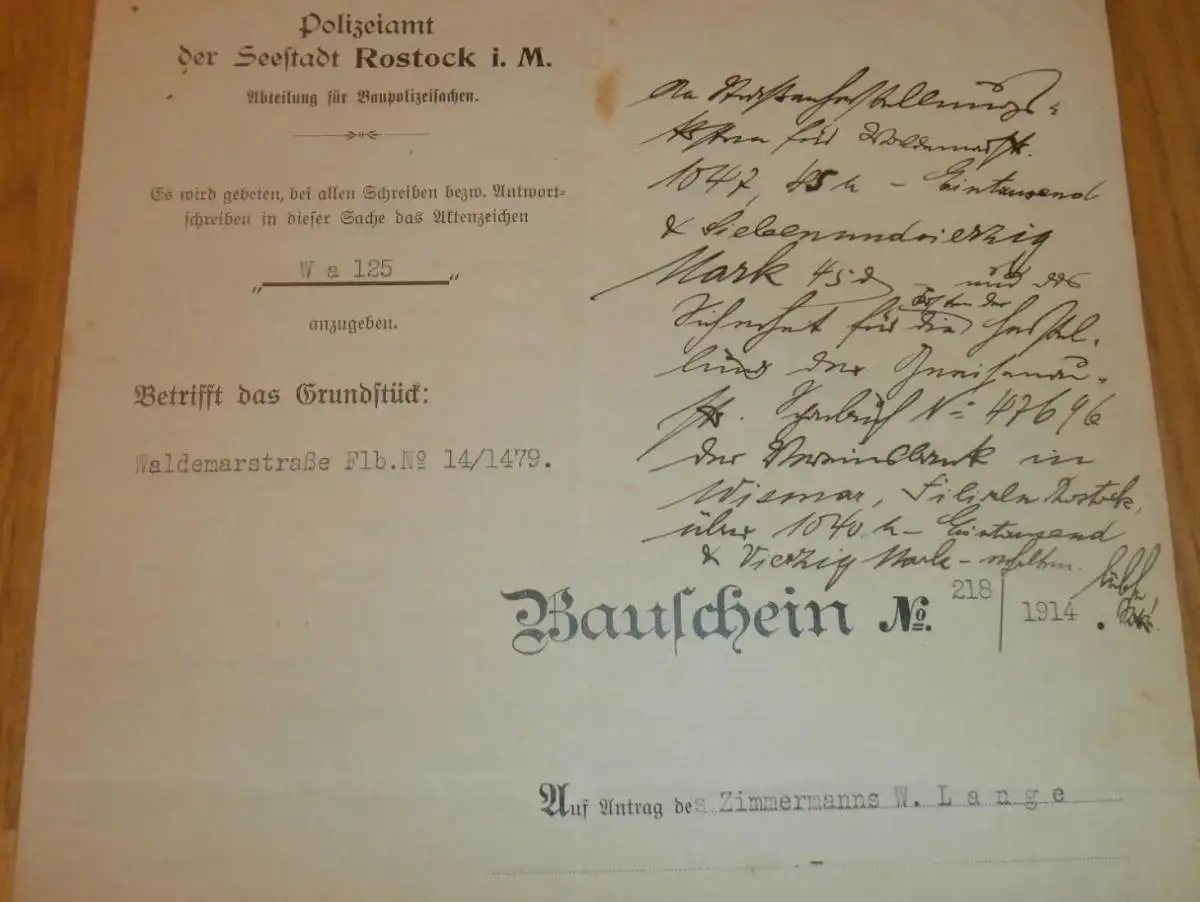 Polizeiamt
der Seestadt Rostock i. M.
Abteilung für Baupolizeisachen.
Es wird gebeten, bei allen Schreiben bezw. Antwort=
schreiben in dieser Sache das Aktenzeichen
„W a 125“
anzugeben.
Betrifft das Grundstück:
Waldemarstraße Flb.No 14/1479.
An Straßenherstellungs=
kosten für Waldemarstr.
1047, 45 M – Eintausend
& Siebenundvierzig
Mark 45 d – und als
Sicherheit für die Kosten der Herstel-
lung der Gneisenau-
str. Sparbuch No 47696
der Vereinsbank in
Wismar, Filiale Rostock,
über 1040 M – Eintausend
& Vierzig Mark – erhalten.
Bauschein No. 218 | 1914.
Auf Antrag des Zimmermanns W. Lange